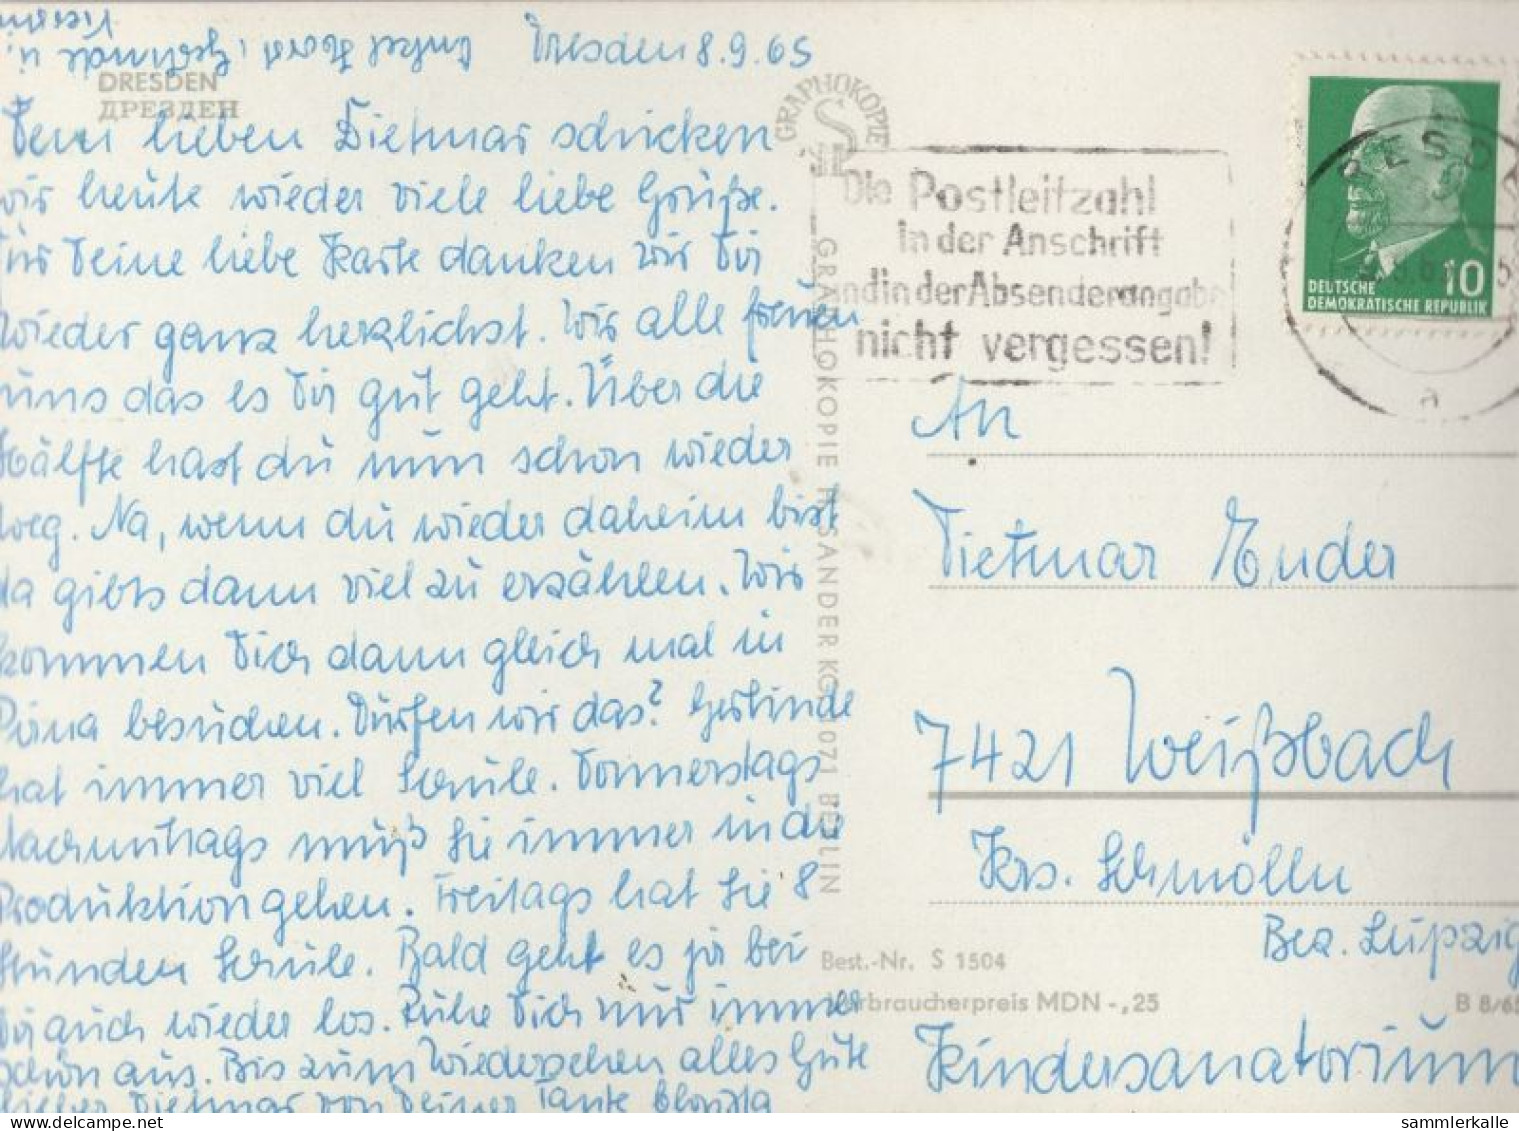 Dresden 8.9.65
DRESDEN
ДРЕЗДЕН
Dem lieben Dietmar schicken
wir heute wieder viele liebe Grüße.
Für Deine liebe Karte danken wir Dir
wieder ganz herzlichst. Wir alle freuen
uns das es Dir gut geht. Über die
Hälfte hast du nun schon wieder
weg. Na, wenn du wieder daheim bist
da gibts dann viel zu erzählen. Wir
kommen Dich dann gleich mal in
Pirna besuchen. Dürfen wir das? Gerlinde
hat immer viel Schule. Donnerstags
Nachmittags muß Sie immer in die
Produktion gehen. Freitags hat Sie 8
Stunden Schule. Bald geht es ja bei
Dir auch wieder los. Ruhe Dich nur immer
schön aus. Bis zum Wiedersehen alles Gute
lieber Dietmar von Deiner Tante
Onkel Horst, Gerlinde u.
GRAPHOKOPIE
GRAPHOKOPIE H. SANDER KG, 1071 BERLIN
Die Postleitzahl
in der Anschrift
und in der Absenderangabe
nicht vergessen!
DEUTSCHE 10
DEMOKRATISCHE REPUBLIK
An
Dietmar Ender
7421 Weißbach
Krs. Schmölln
Bez. Leipzig
Kindersanatorium
Best.-Nr. S 1504
Verbraucherpreis MDN -,25
B 8/65
sammlerkalle
© sammlerkalle